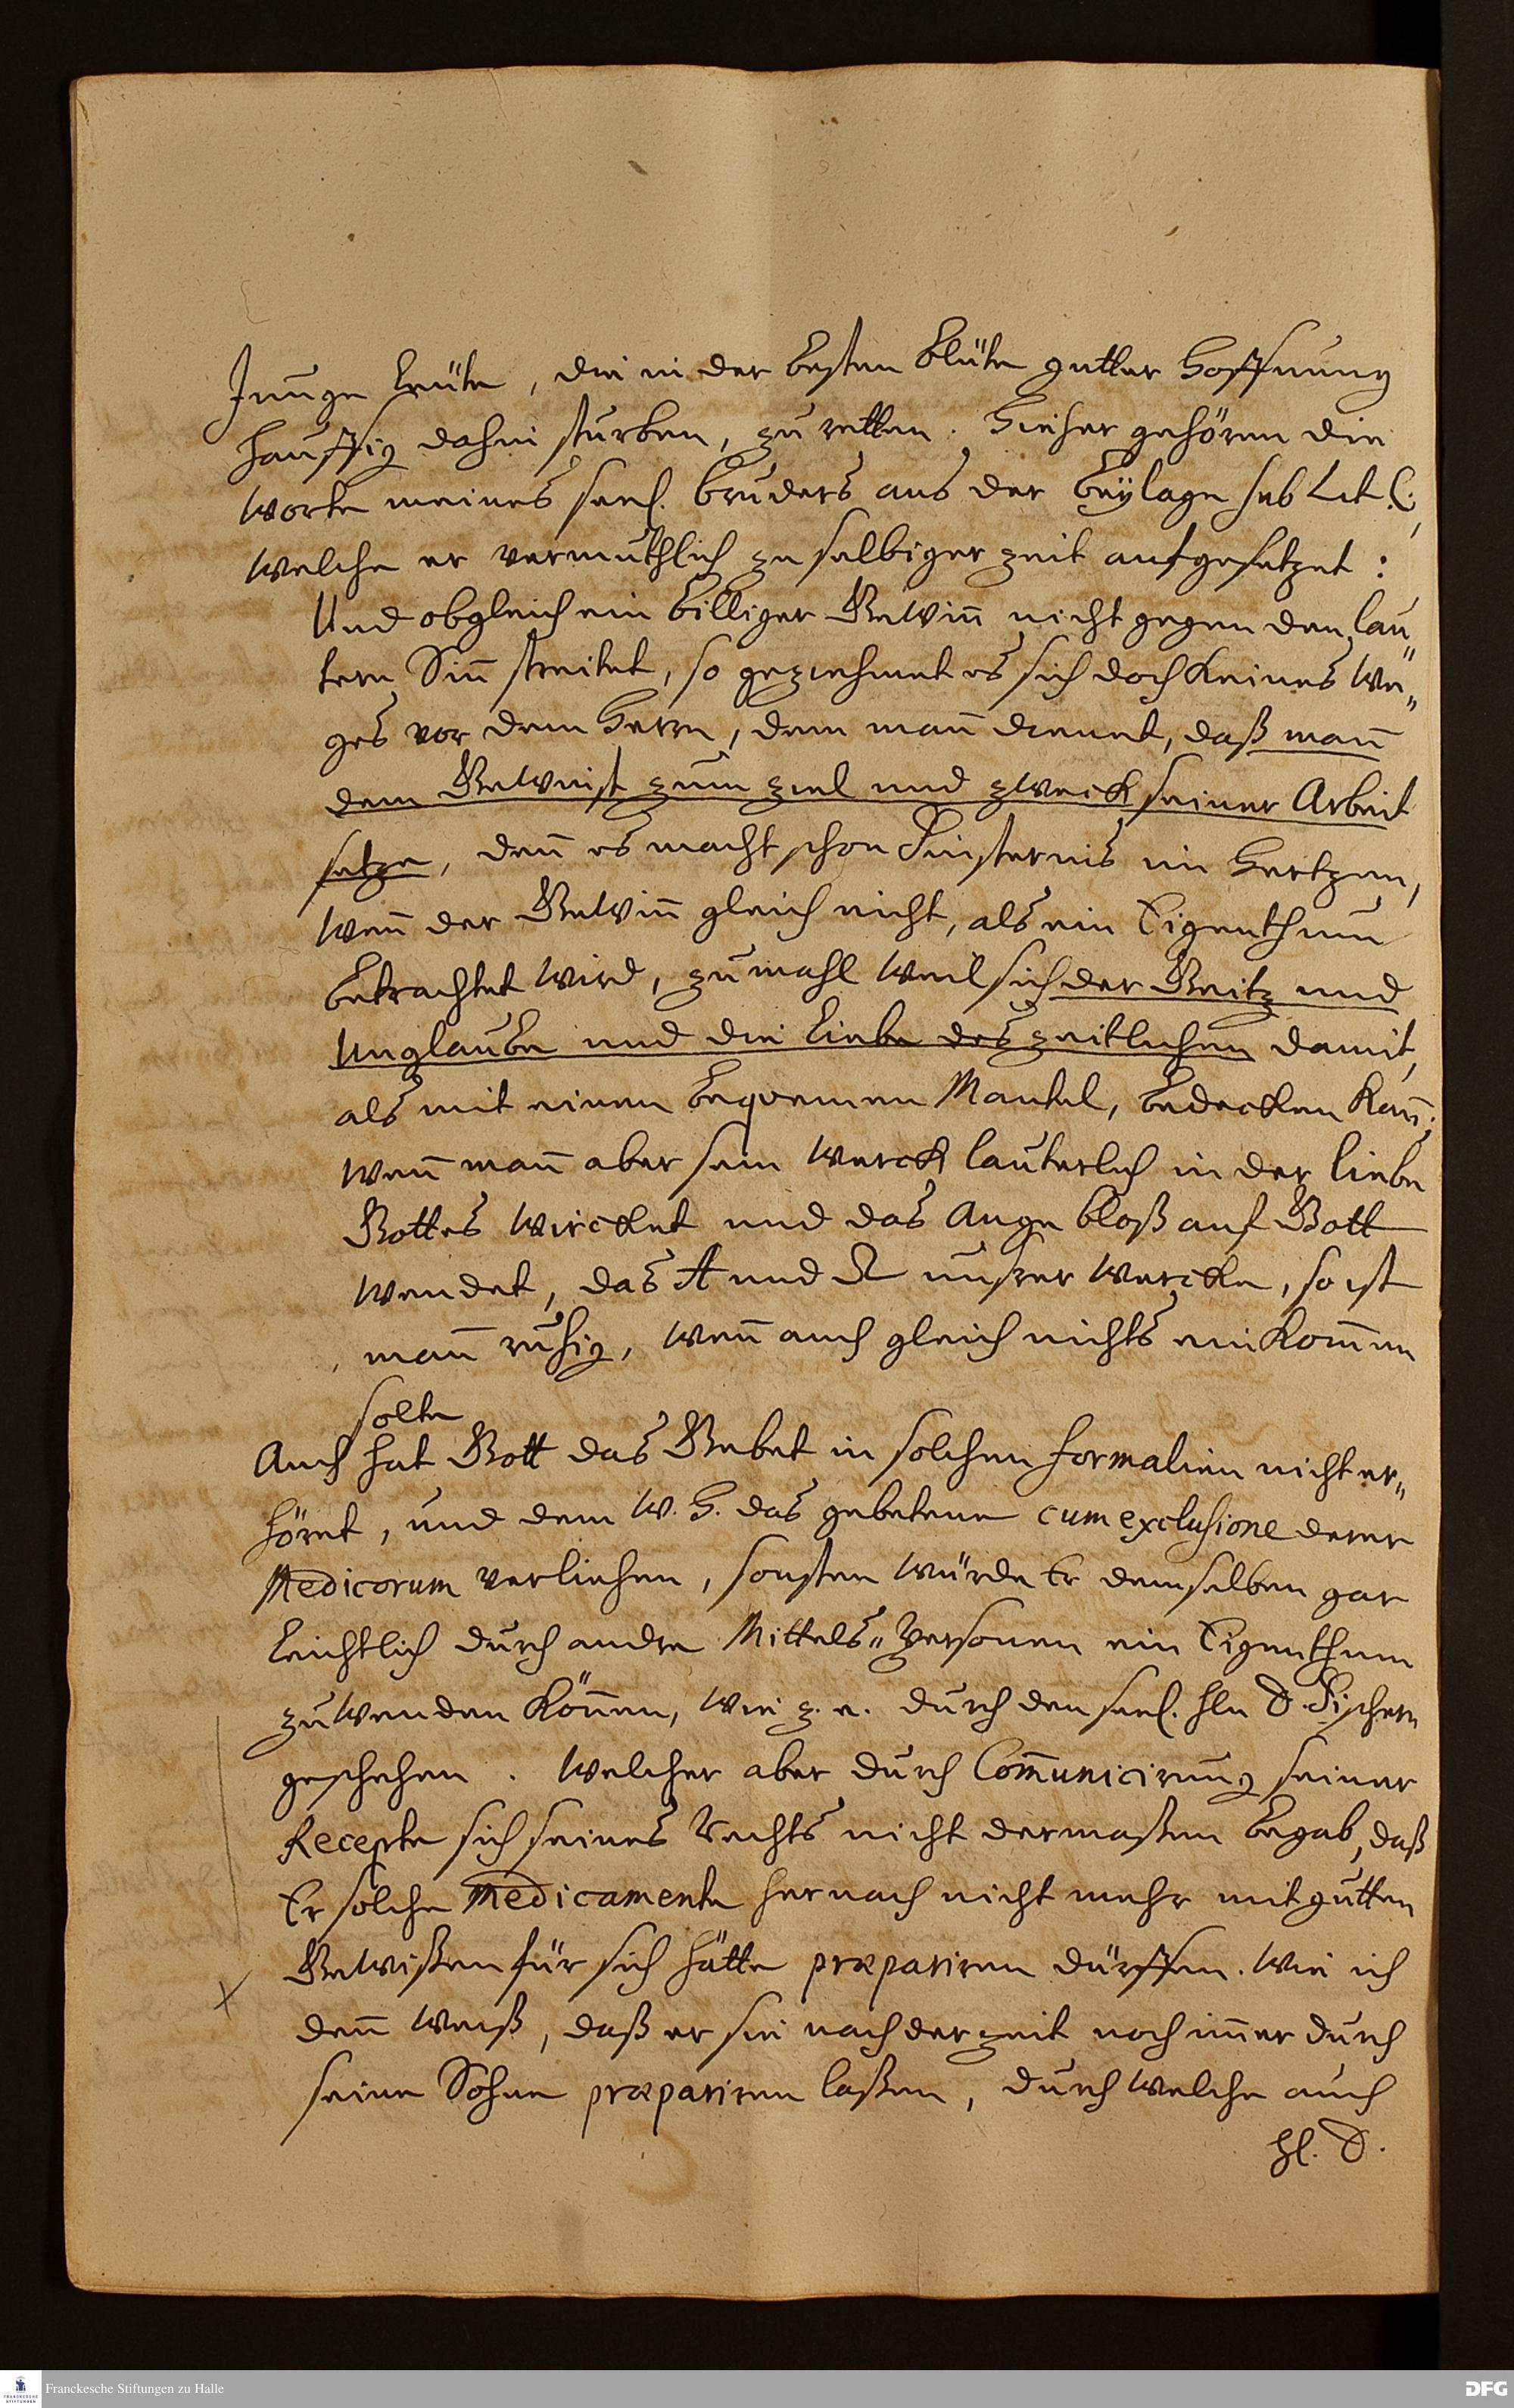 Junge Leüte, die in der besten blüte gutter Hoffnung
hauffig dahin sturben, zu retten. Hieher gehören die
Worte meines seel. bruders aus der beÿlage sub Lit. C.,
Welche er vermuthlich zu selbiger zeit aufgesetzet:
Und obgleich ein billiger Gewiñ nicht gegen den lau„
tern Siñ streitet, so geziehmet es sich doch keines We„
ges vor dem Herrn, dem mañ dienet, daß mañ
dem Gewinst zum ziel und zweck seiner Arbeit
setze, deñ es macht schon Finsternis im Hertzen,
Weñ der Gewiñ gleich nicht, als ein Eigenthum
betrachtet wird, zumahl weil sich der Geitz und
Unglaube und die liebe des zeitlichen damit,
als mit einem beqvemen Mantel, bedecken kañ;
Weñ mañ aber sein Werck lauterlich in der liebe
Gottes wircket und das Auge bloß auf Gott
wendet, das A und Ω unsrer Wercke, so ist
mañ ruhig, weñ auch gleich nichts einkom̃en
solte
Auch hat Gott das Gebet in solchen formalien nicht er„
höret, und dem W. H. das gebetene cum exclusione derer
Medicorum verliehen, sonsten würde Er demselben gar
leichtlich durch andre Mittels„Personen ein Eigenthum
zuwenden köñen, wie z. e. durch den seel. Hln D. Fischern
geschehen. Welcher aber durch Com̃unicirung seiner
Recepte sich seines Rechts nicht dermaßen begab, daß
Er solche Medicamente hernach nicht mehr mit gutten
Gewißen für sich hätte præpariren dürffen. Wie ich
deñ weiß, daß er sie nach der zeit noch im̃er durch
seine Söhne præpariren laßen, durch welche auch
Hl. D.
Franckesche Stiftungen zu Halle
DFG